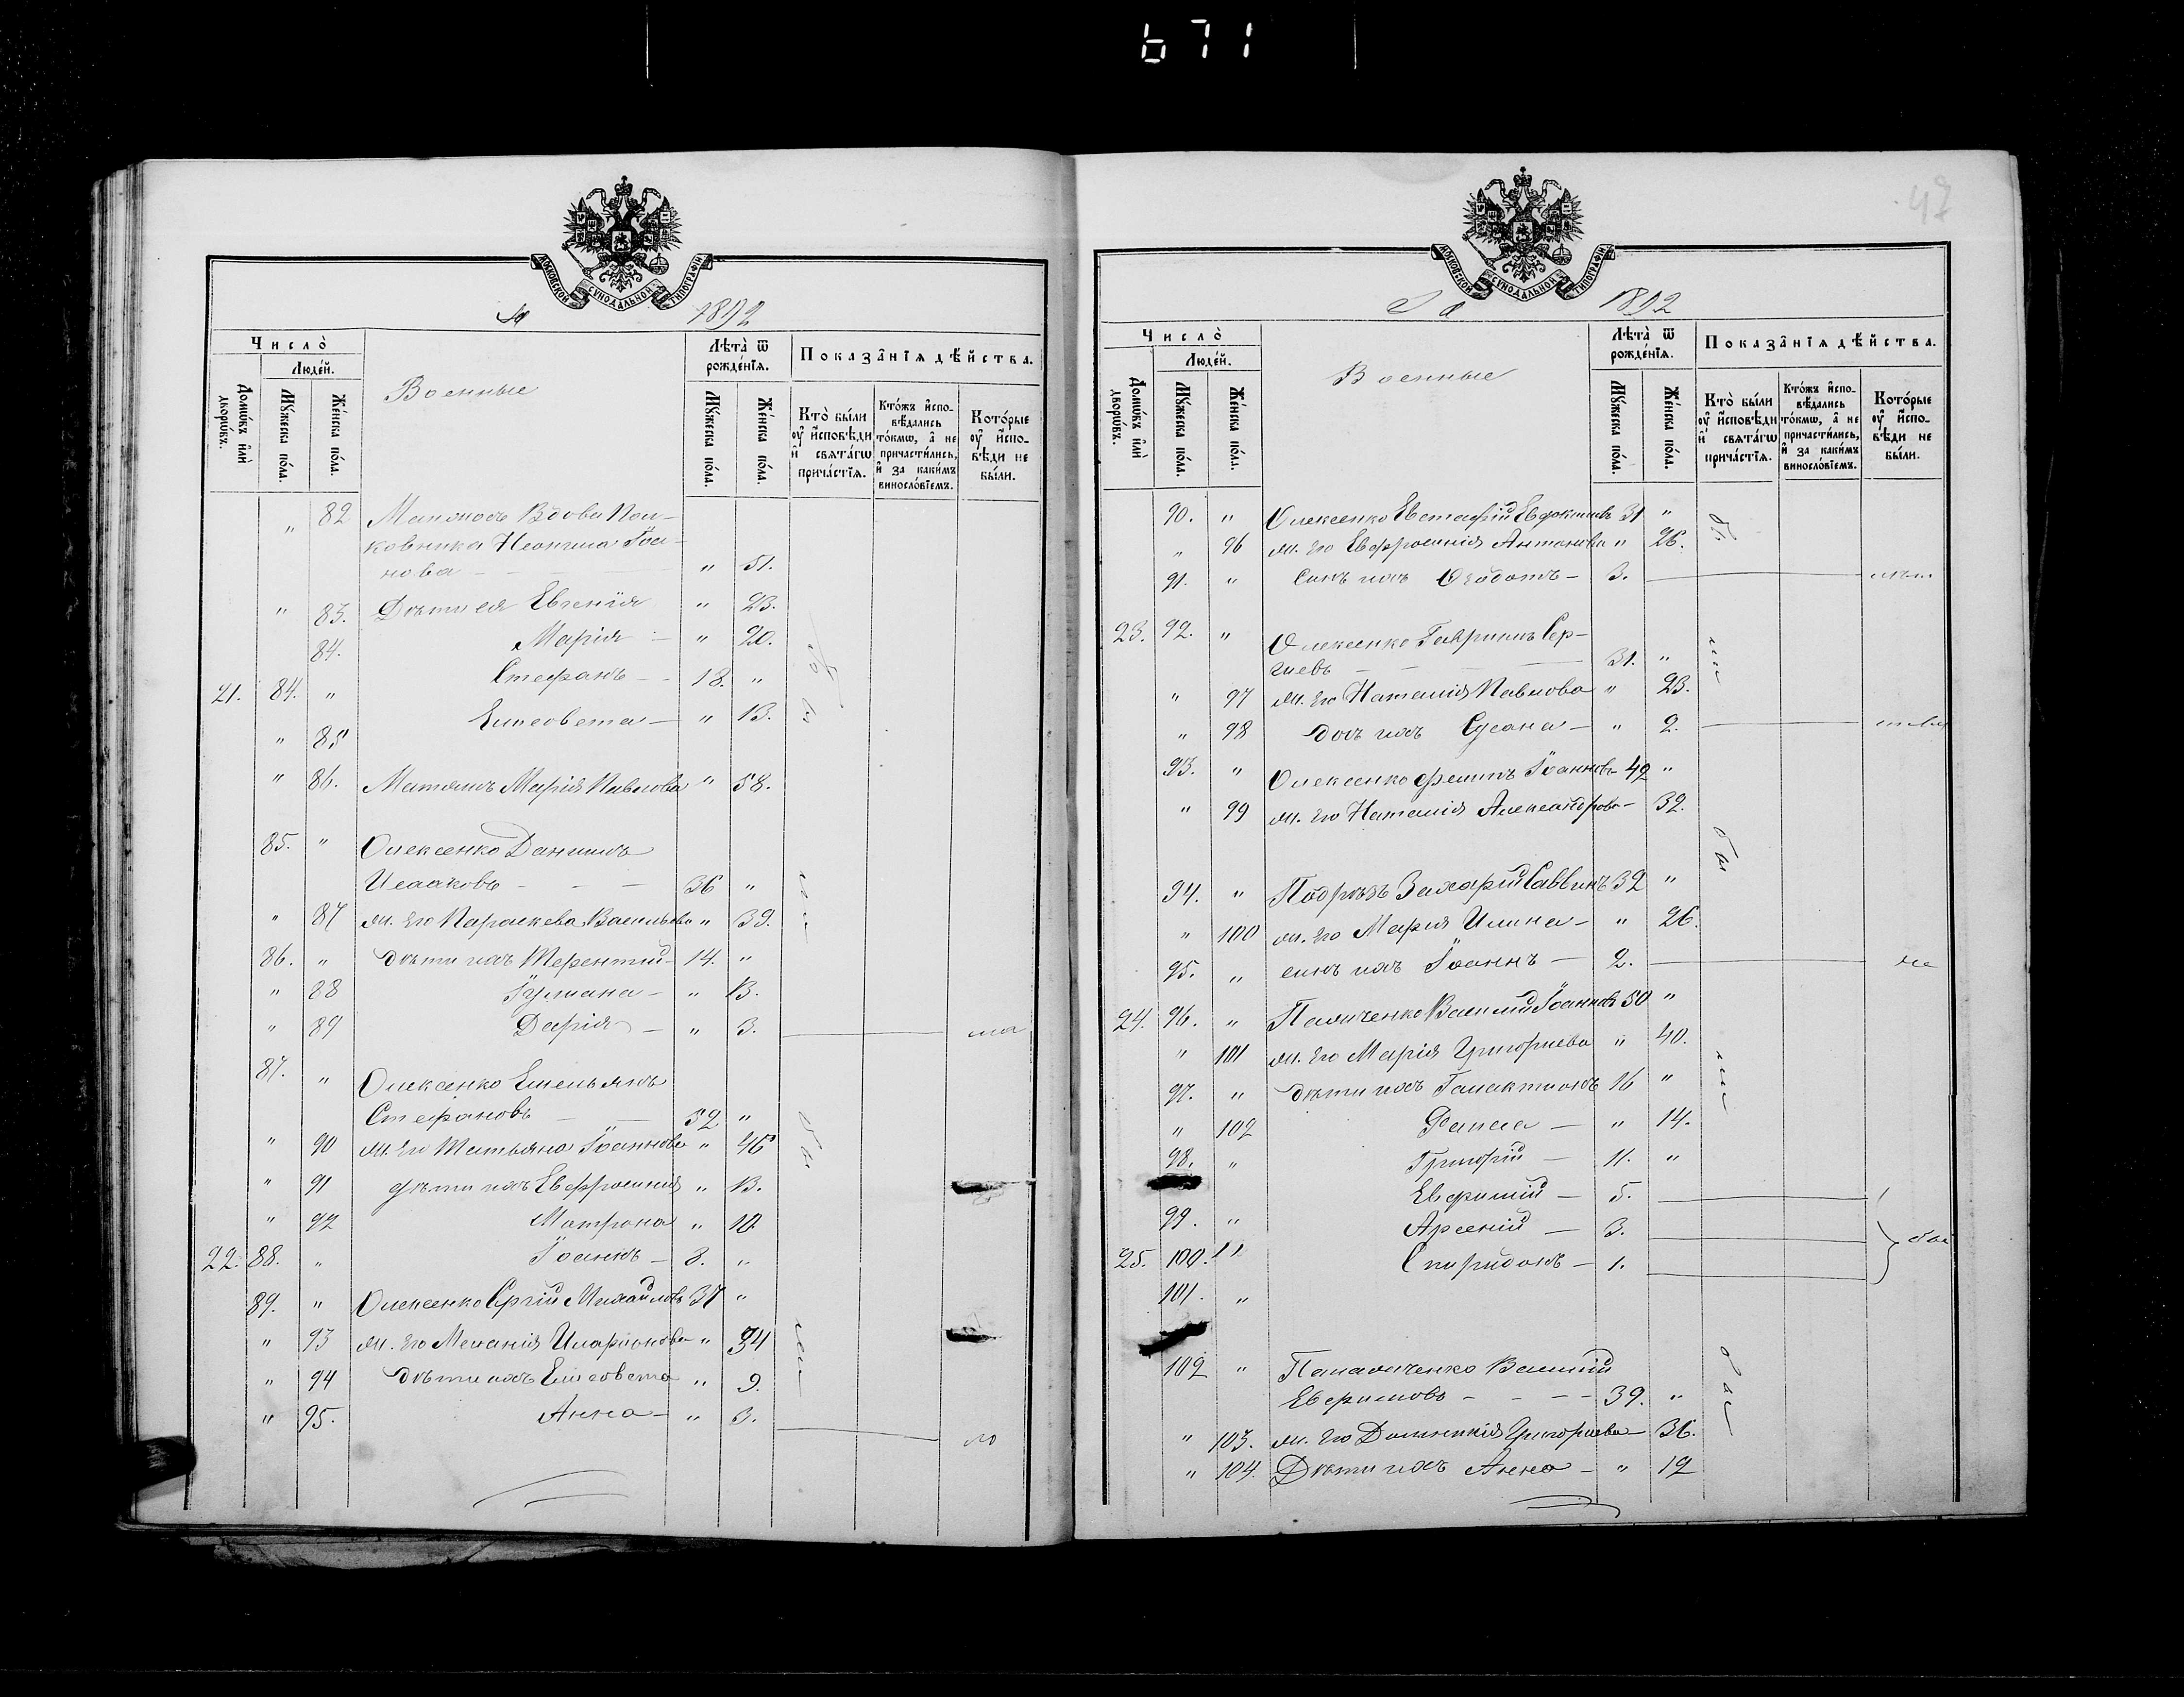 671
МОСКОВСКОЙ СУНОДАЛЬНОЙ ТИПОГРАФІИ
1892
Число̀
Лю́дей.
Домѡ́въ и҆лѝ дворѡ́въ.
Мꙋ́жеска по́ла.
Же́нска по́ла.
Военные
Лѣта̀ ѿ рожде́нїѧ.
Мꙋ́жеска по́ла.
Же́нска по́ла.
Показа̑нїѧ дѣ́йства.
Кто̀ бы́ли ᲂу҆ и҆сповѣ́ди и҆ свѧта́гѡ прича́стїѧ.
Кто́жъ и҆спо-
вѣ́дались
то́кмѡ, а҆ не
причасти́лись,
и҆ за каки́мъ
винослѡ́вїемъ.
Кото́рые
ᲂу҆ и҆спо-
вѣди не
бы́ли.
" 82 Вдова Пол-
ковника Іоан-
нова — " 51.
" 83. Дѣти ея Евгенія " 23.
84. Марія — " 20.
21. 84. " Стефанъ — 18. "
" 85 Елисовета — " 13.
" 86. Марія Павлова " 58.
85. " Олексенко Даніилъ
Исааковъ — 36 "
" 87 ж. его Параскева Васильева " 39.
86. " дѣти ихъ Терентій — 14. "
" 88 Іуліана — " 13.
" 89 Дарія — " 3.
87. " Олексенко Емельянъ
Стефановъ — 52 "
" 90 ж. его Татьяна Іоаннова " 46
" 91 дѣти ихъ Евфросинія " 13.
" 92 Матрона " 10
22. 88. " Іоаннъ — 8. "
89. " Олексенко Сергій Михайловъ 37 "
" 93 ж. его Меланія Иларіонова " 34
" 94 дѣти ихъ Елисовета " 9.
" 95. Анна — " 3.
47
МОСКОВСКОЙ СУНОДАЛЬНОЙ ТИПОГРАФІИ
За 1892
Число̀
Лю́дей.
Домѡ́въ и҆лѝ дворѡ́въ.
Мꙋ́жеска по́ла.
Же́нска по́ла.
Военные
Лѣта̀ ѿ рожде́нїѧ.
Мꙋ́жеска по́ла.
Же́нска по́ла.
Показа̑нїѧ дѣ́йства.
Кто̀ бы́ли ᲂу҆ и҆сповѣ́ди и҆ свѧта́гѡ прича́стїѧ.
Кто́жъ и҆спо-
вѣ́дались
то́кмѡ, а҆ не
причасти́лись,
и҆ за каки́мъ
винослѡ́вїемъ.
Кото́рые
ᲂу҆ и҆спо-
вѣди не
бы́ли.
90. " Олексенко Евстафій 31 "
" 96 ж. его Евфросинія Антонова " 26.
91. " сынъ ихъ Ѳеодотъ — 3.
23. 92. " Олексенко Гавріилъ Сер-
гіевъ — 31. "
" 97 ж. его Наталія Павлова " 23.
" 98 дочь ихъ Сусана — " 2.
93. " Олексенко Филипъ Іоанновъ 42 "
" 99 ж. его Наталія Александрова — 32.
94. " Подрѣзъ Захарій Саввинъ 32 "
" 100 ж. его Марія Илина — " 26.
95. " сынъ ихъ Іоаннъ — 2. не
24. 96. " Василій Іоанновъ 50 "
" 101 ж. его Марія Григоріева " 40.
97. " дѣти ихъ Галактіонъ 16 "
" 102 — " 14.
98. " Григорій — 11. "
Евфимій — 5.
99. " Арсеній — 3.
25. 100. " Спиридонъ — 1.
101. "
102 " Василій
Евфимовъ — 39. "
" 103. ж. его Домникія Григоріева — 36.
" 104. Дѣти ихъ Анна — " 12